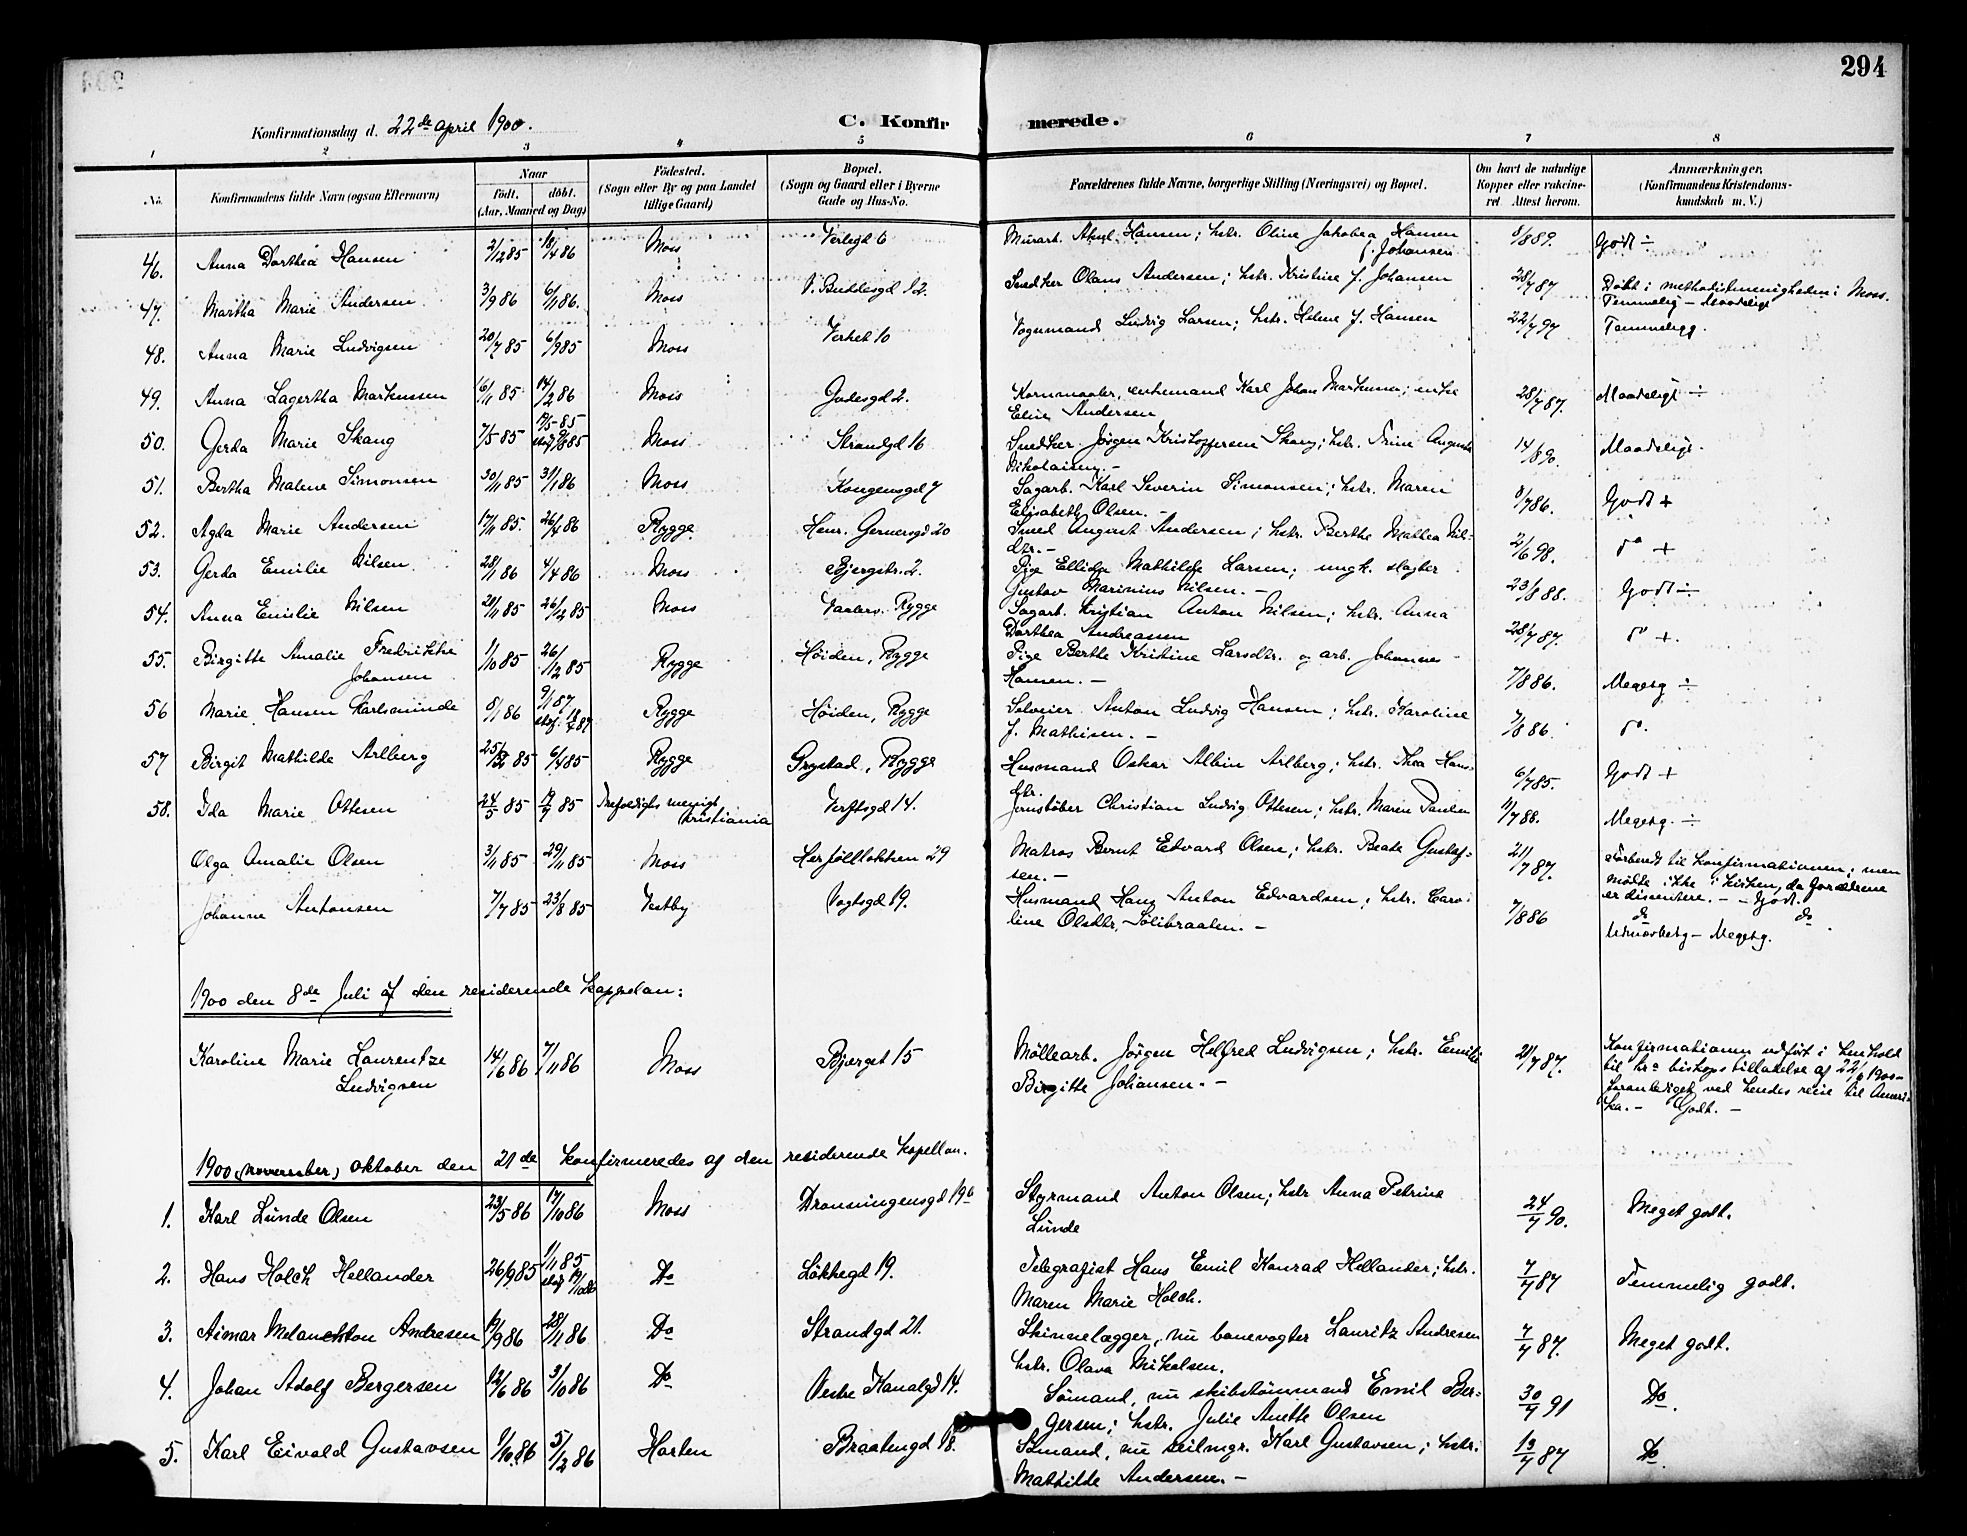 294
Konfirmationsdag d. 22de april 1900.
C. Konfirmerede.
1 2 3 4 5 6 7 8
No. Konfirmandens fulde Navn (ogsaa Efternavn) Naar født. døbt. (Aar, Maaned og Dag) Fødested. (Sogn eller By og paa Landet tillige Gaard) Bopæl. (Sogn og Gaard eller i Byerne Gade og Hus-No. Forældrenes fulde Navne, borgerlige Stilling (Næringsvei) og Bopæl. Om havt de naturlige Kopper eller vakcineret Attest herom. Anmærkninger. (Konfirmandens Kristendomskundskab m. V.)
46. Anna Dorthea Hansen 2/12 85 18/4 86 Moss Verlegd 6 Murarb. Hansen; hstr. Oline Jakobea Hansen 8/8 89. Godt ÷
f. Johansen
47. Martha Marie Andersen 3/9 86 6/11 86. Moss V. Buddesgd 12. Snedker Olaus Andersen; hstr. Kristine f. Johansen 28/7 87 Døbt i methodistmenigheden i Moss.
Temmelig – Maadeligt
48. Anna Marie Ludvigsen 20/7 85 6/9 85 Moss Verket 10 Vognmand Ludvig Larsen; hstr. Helene f. Hansen 22/7 97 Temmelig g.
49. Anna Lagertha Markussen 16/11 85 14/2 86 Moss Godesgd 2. Kornmaaler, enkemand Karl Johan Markussen; enke 28/7 87. Maadeligt ÷
Eline Andersen
50. Gerda Marie Skaug 7/5 85 Moss Strandgd 16 Snedker Jørgen Kristoffersen Skaug; hstr. Trine Augusta 14/8 90. Maadeligt.
Nikolaisen. –
51. Bertha Malene Simonsen 30/11 85 31/1 86 Moss Kongensgd 7 Sagarb. Karl Severin Simonsen; hstr. Maren 8/7 86. Godt +
Elisabeth Olsen. –
52. Agda Marie Andersen 17/11 85. 26/4 86 Rygge Henr. Gernersgd 20 Smed August Andersen; hstr. Berthe Mathea Nils- 2/6 98. do +
dtr. –
53. Gerda Emilie Nilsen 28/1 86 4/4 86 Moss Bjergstr. 2. Pige Ellida Mathilde Larsen; ungk. slagter 23/8 88. Godt ÷
Gustav Marinius Nilsen. –
54. Anna Emilie Nilsen 21/11 85 26/12 85 Moss Vaalerv. Rygge Sagarb. Kristian Anton Nilsen; hstr. Anna 28/7 87. do +.
Dorthea Andreassen
55. Birgitte Amalie Fredrikke 1/10 85 26/12 85 Rygge Høiden, Rygge Pige Berthe Kristine Larsdtr. og arb. Johannes 7/8 86. Megetg ÷
Johansen Hansen. –
56 Marie Hansen Karlsminde 8/1 86 9/1 87 Rygge Høiden, Rygge Selveier Anton Ludvig Hansen; hstr. Karoline 7/8 86. do.
f. Mathisen. –
57 Birgit Mathilde Arlberg 85 6/4 85 Rygge Grystad, Rygge Husmand Oskar Albin Arlberg; hstr. Thea Hans- 6/7 85. Godt +
dtr.
58. Ida Marie Ottesen 24/5 85 19/7 85 Trefoldigh. menigh. Kristiania Verftsgd 14. Jernstøber Christian Ludvig Ottesen; hstr. Maren Paulsen 11/7 88. Megetg. ÷
Olga Amalie Olsen 3/11 85 29/11 85 Moss Herføllløkken 29 Matros Bernt Edvard Olsen; hstr. Beate Gustaf- 21/7 87. Forberedt til konfirmationen; men
sen. – mødte ikke i kirken, da forældrene
er dissentere. – – Godt.
Johanne Antonsen 7/7 85 23/8 85 Vestby Vogtsgd 19. Husmand Hans Anton Edvardsen; hstr. Caro- 7/8 86 do do
line Olsdtr, Sølibraaten. – Megetg.
1900 den 8de Juli af den residerende kappelan:
Karoline Marie Laurentze 14/6 86 7/11 86 Moss Bjerget 15 Møllearb. Jørgen Helfred Ludvigsen; hstr. Emilie 21/7 87. Konfirmationen udført i henhold
Ludvigsen Birgitte Johansen. – til hr. bishops tilladelse af 22/6 1900 –
foranlediget ved hendes reise til Ameri-
ka. – Godt. –
1900 (november) oktober den 21de konfirmeredes af den residerende kapellan.
1. Karl Lunde Olsen 23/5 86 17/10 86 Moss Dronningensgd 19a Styrmand Anton Olsen; hstr Anna Petrine 24/7 90. Meget godt.
Lunde
2. Hans Holch Hellander 26/9 85 1/11 85 Do Løkkegd 19. Telegrafist Hans Emil Konrad Hellander; hstr. 7/7 87 Temmelig godt.
Maren Marie Holch.
3. Aimar Melanchton Andresen 19/9 86 28/11 86 Do Strandgd 21. Skinnelægger, nu banevogter Lauritz Andresen 7/7 87. Meget godt.
hstr. Olava Mikalsen.
4. Johan Adolf Bergersen 12/6 86 3/10 86 Do Vestre Kanalgd 14. Sømand, nu skibstømmand Emil Ber- 30/7 91 Do.
gersen; hstr. Julie Anette Olsen
5. Karl Eivald Gustavsen 1/10 86 5/12 86 Horten Braatengd 18. Sømand, nu seilmgr. Karl Gustavsen; hstr. 13/7 87 Do.
Mathilde Andersen. –